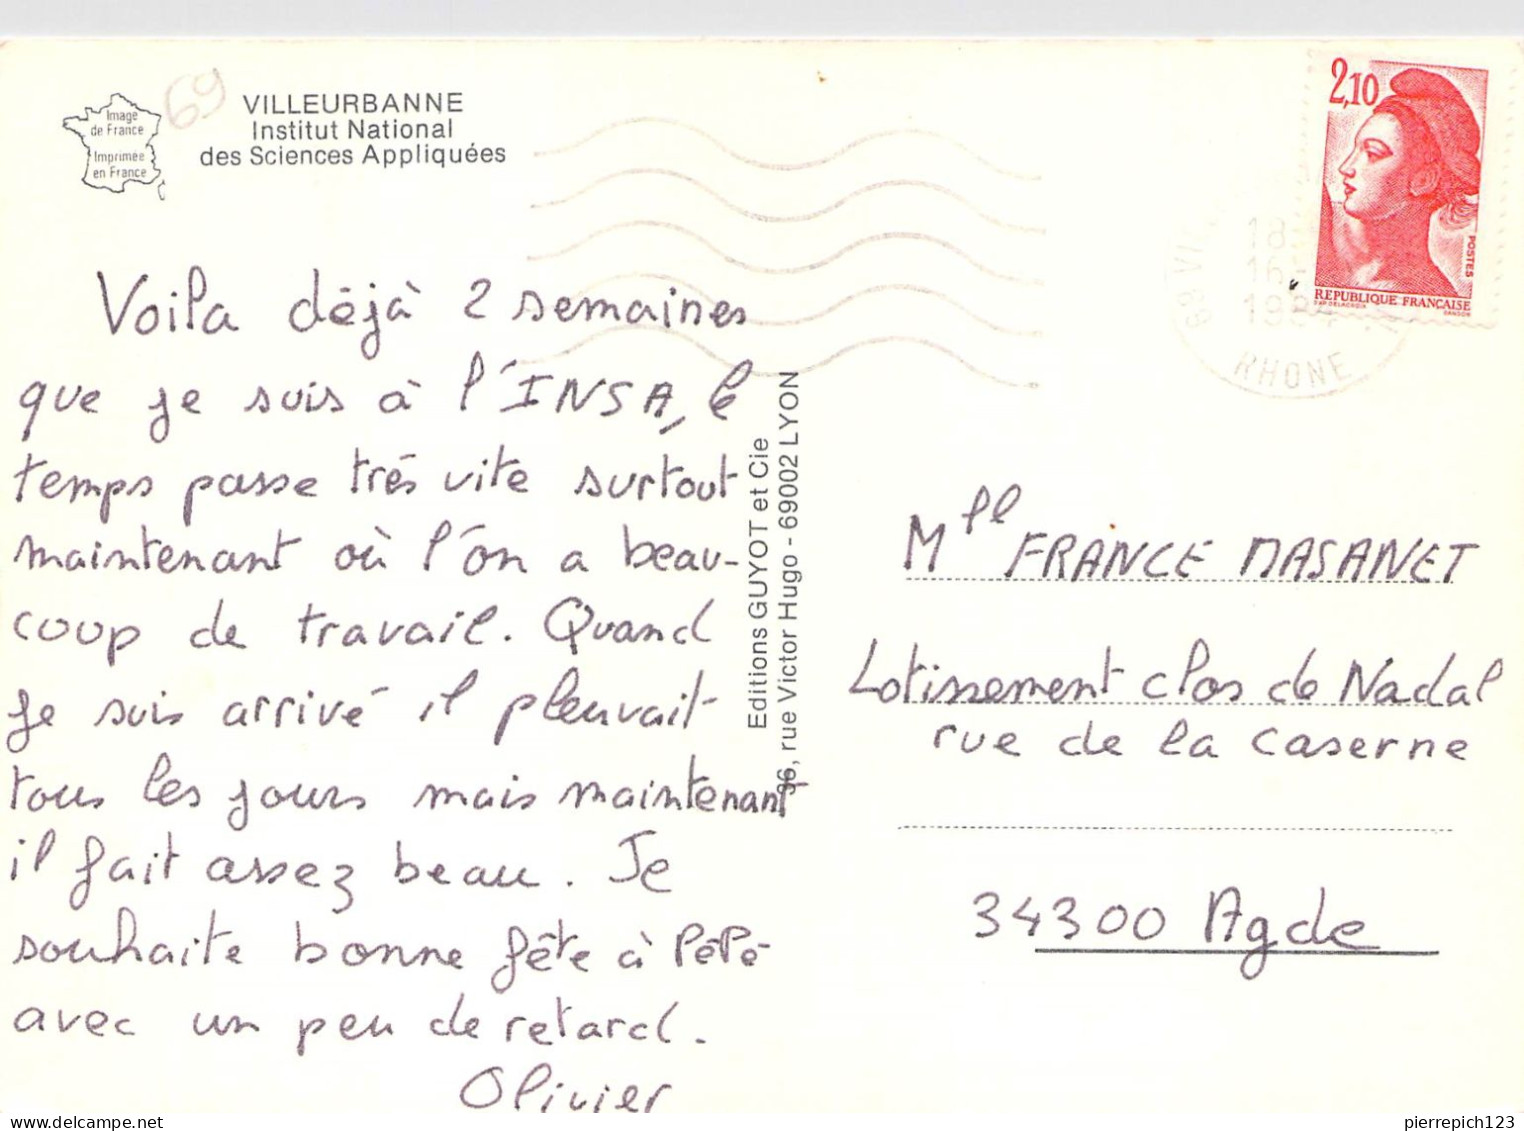 Image
de France
Imprimée
en France
69
VILLEURBANNE
Institut National
des Sciences Appliquées
Voila déjà 2 semaines
que je suis à l'INSA, le
temps passe très vite surtout
maintenant où l'on a beau-
coup de travail. Quand
je suis arrivé il pleuvait
tous les jours mais maintenant
il fait assez beau. Je
souhaite bonne fête à Pépé
avec un peu de retard.
Olivier
Editions GUYOT et Cie
36, rue Victor Hugo - 69002 LYON
2,10
POSTES
REPUBLIQUE FRANÇAISE
18
16
1984
RHONE
Mlle FRANCE MASANET
Lotissement clos de Nadal
rue de la caserne
34300 Agde
pierrepich123